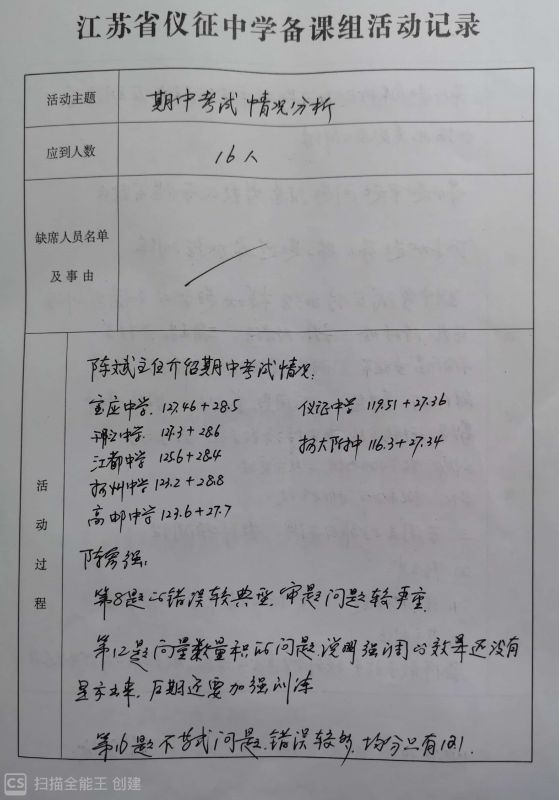 江苏省仪征中学备课组活动记录
活动主题 期中考试情况分析
应到人数 16人
缺席人员名单
及事由
活动过程
陈斌主任介绍期中考试情况:
宝应中学 127.46+28.5 仪征中学 119.51+27.36
中学 127.3+28.6
江都中学 125.6+28.4 扬大附中 116.3+27.34
扬州中学 123.2+28.8
高邮中学 123.6+27.7
第8题的错误较典型,审题问题较严重
第12题向量数量积的问题,说明强调的效果还没有
显示出来,后期还要加强训练
第16题不等式问题,错误较多,均分只有
CS 扫描全能王 创建